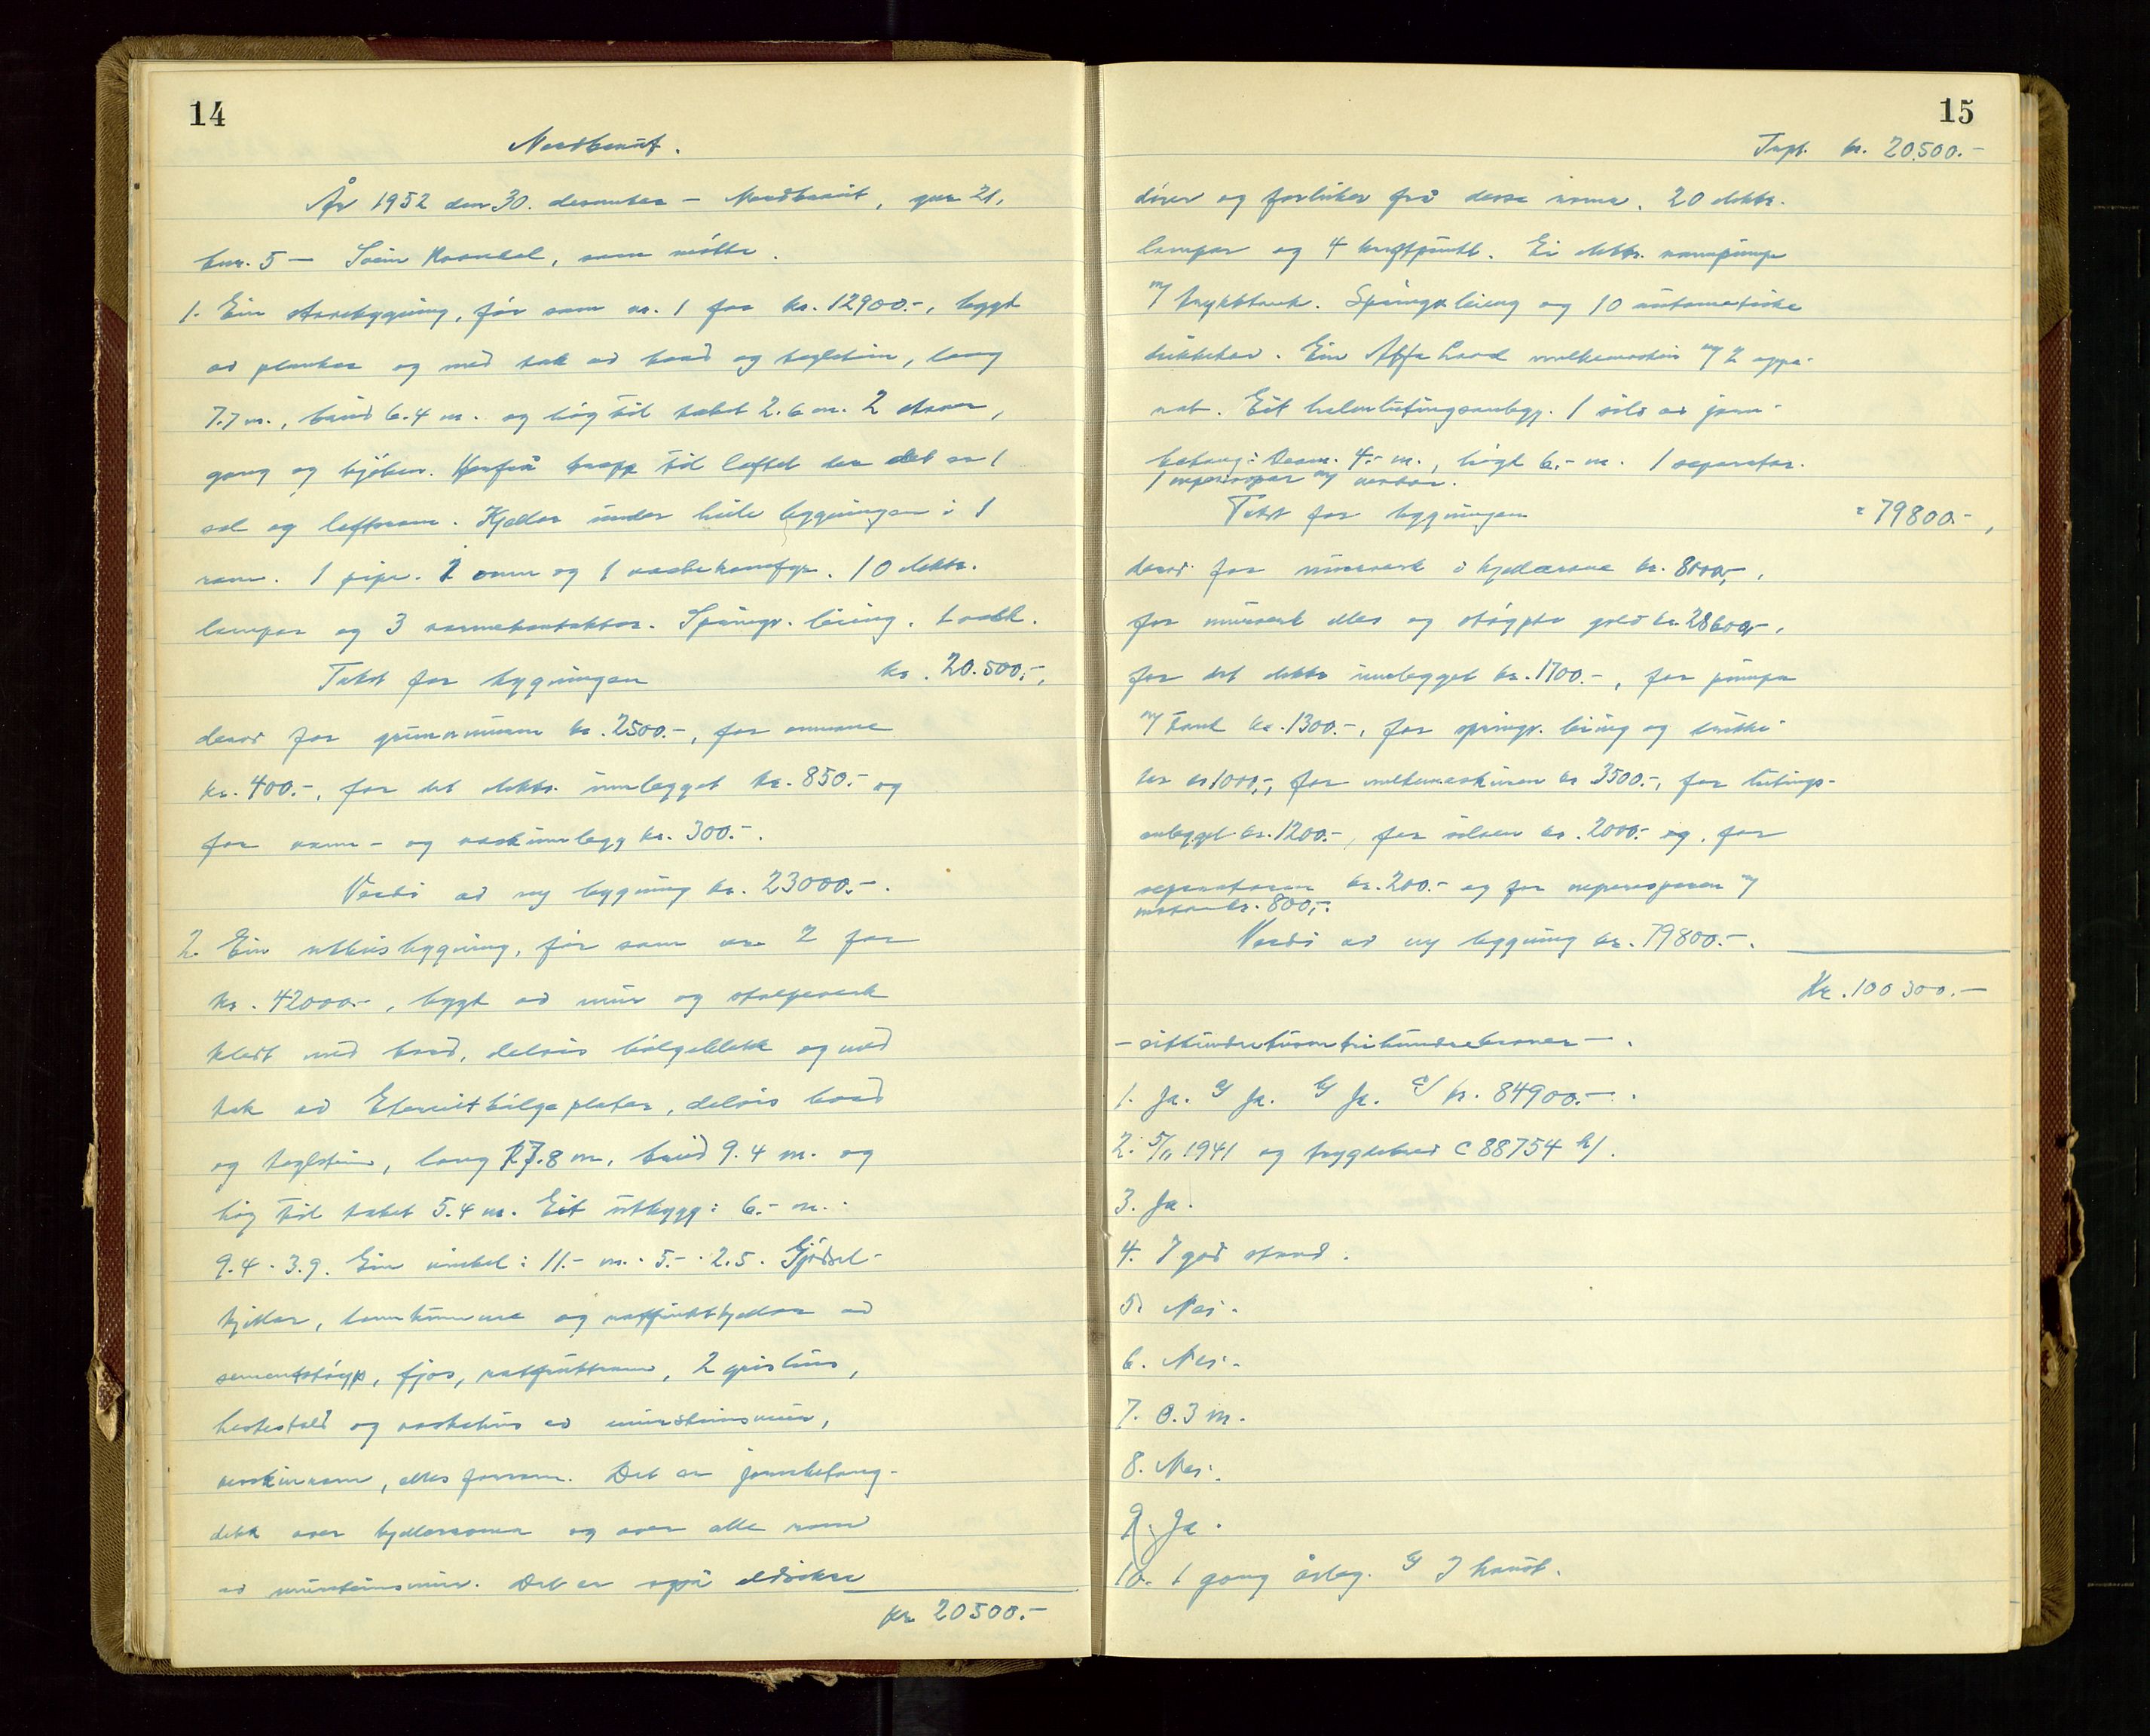 14
Nordbraut.
År 1952 den 30. desember – Nordbraut, gnr 21,
bnr. 5 – Svein Rosseland, som møtte.
1. Ein stovebygning, før som nr. 1 for kr. 12900.-, bygd
av plankar og med tak av bord og teglstein, lang
7.7 m., breid 6.4 m. og høg til taket 2.6 m. 2 stover,
gang og kjøken. Herfrå trapp til loftet der det er 1
sal og loftsrom. Kjellar under heile bygningen i 1
rom. 1 pipe. 2 omn og 1 vaskekomfyr. 10 elektr.
lampar og 3 varmekontaktar. Springv. leiing. 1 vask.
Takst for bygningen kr. 20.500.-,
derav for grunnmuren kr. 2500.-, for omnane
kr. 400.-, for det elektr. innlegget kr. 850.- og
for vann- og vaskinnlegg kr. 300.-.
Verdi av ny bygning kr. 23000.-.
2. Ein uthusbygning, før som nr 2 for
kr. 42000.-, bygt av mur og stolpeverk
kledt med bord, delvis bølgeblekk og med
tak av Eternitbølgeplater, delvis bord
og teglstein, lang 17.8 m, breid 9.4 m. og
høg til taket 5.4 m. Eit utbygg: 6.- m. ·
9.4 · 3.9. Ein vinkel: 11.- m. · 5.- · 2.5. Gjødsel-
kjellar, landkummane og rotfruktkjellar av
sementstøyp, fjos, rotfruktrom, 2 grishus,
hestestall og vaskehus av mursteinsmur,
maskinrom, elles forrom. Det er jernbetong-
dekk over kjellarromma og over alle rom
av mursteinsmur. Det er også eldsikre
kr 20500.-
15
Trspt. kr. 20.500.-
dører og forluker frå desse romma. 20 elektr.
lampar og 4 kraftpunkt. Ei elektr. vannpumpe
m/ trykktank. Springv. leiing og 10 automatiske
drikkekar. Ein Alfa Laval mjølkemaskin m/ 2 appa-
rat. Eit halmlutingsanlegg. 1 silo av jern-
betong: Diam. 4.- m., høgd 6.- m. 1 separator.
1 m/ motor.
Takst for bygningen " 79800.-,
derav for murverk i kjellarane kr. 8000.-,
for murverk elles og støypte golv kr. 28600.-,
for det elektr innlegget kr. 1700.-, for pumpa
m/ tank kr. 1300.-, for springv. leiing og drikke-
kar kr 1000.-, for mjølkemaskinen kr 3500.-, for lutings-
anlegget kr. 1200.-, for siloen kr. 2000.- og for
separatoren kr. 200.- og for m/
motor kr. 800.-.
Verdi av ny bygning kr. 79800.-.
Kr. 100 300.-
– eitthundretusentrihundrekroner –.
1. Ja. a/ Ja. b/ Ja. c/ kr. 84900.-.
2. 5/11 1941 og trygdebrev C 88754 h/.
3. Ja.
4. I god stand.
5. Nei.
6. Nei.
7. 0.3 m.
8. Nei.
9. Ja.
10. 1 gong årleg. b/ I haust.